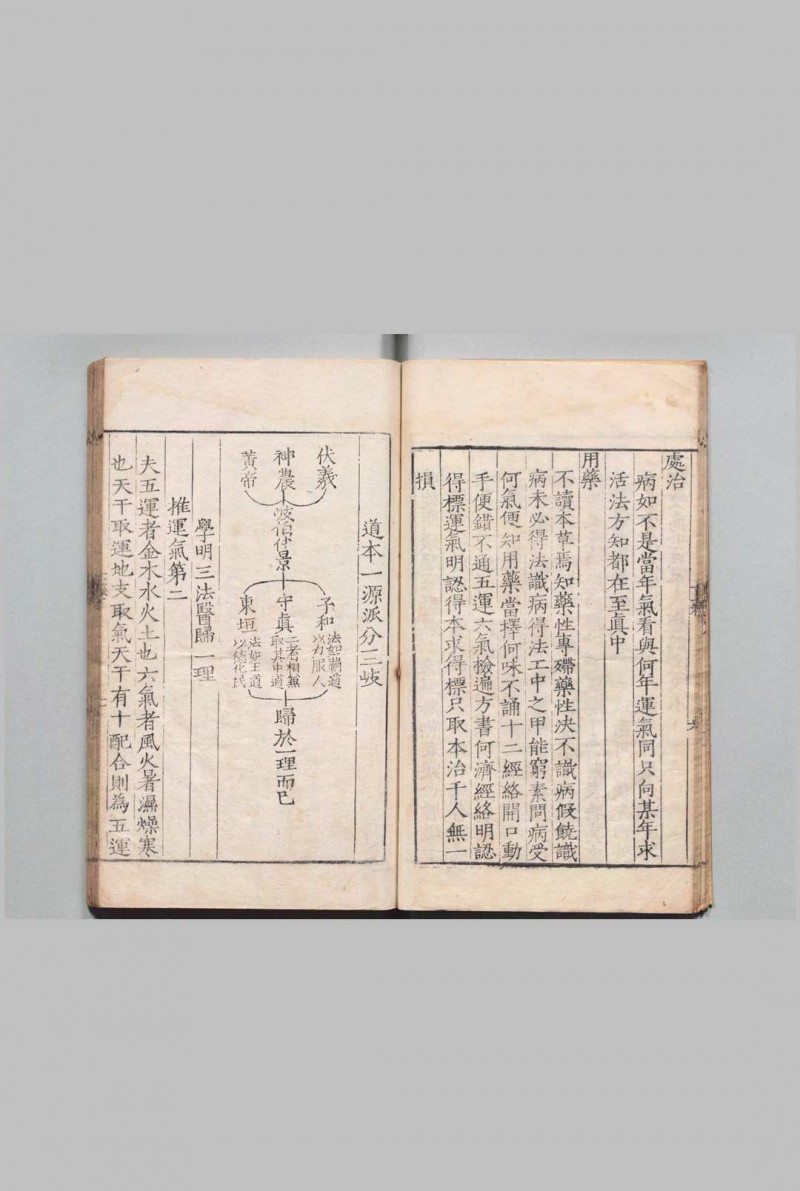 處治
病如不是當年氣看與何年運氣同只向某年求
活法方知都在至眞中
用藥
不讀本草焉知藥性專嫦藥性決不識病假饒識
病未必得法識病得法工中之甲能窮素問病受
何氣便知用藥當擇何味不誦十二經絡開口動
手便錯不通五運六氣檢遍方書何濟經絡明認
得標運氣明認得本求得標只取本治千人無一
損
道本一源派分三岐
伏羲
神農
黃帝
岐伯仲景
子和
法如霸道
以力服人
守眞
二者相無
取其中道
東垣
法如王道
以德化民
歸於一理而已
學明三法醫歸一理
推運氣第二
夫五運者金木水火土也六氣者風火暑濕燥寒
也天干取運地支取氣天干有十配合則為五運